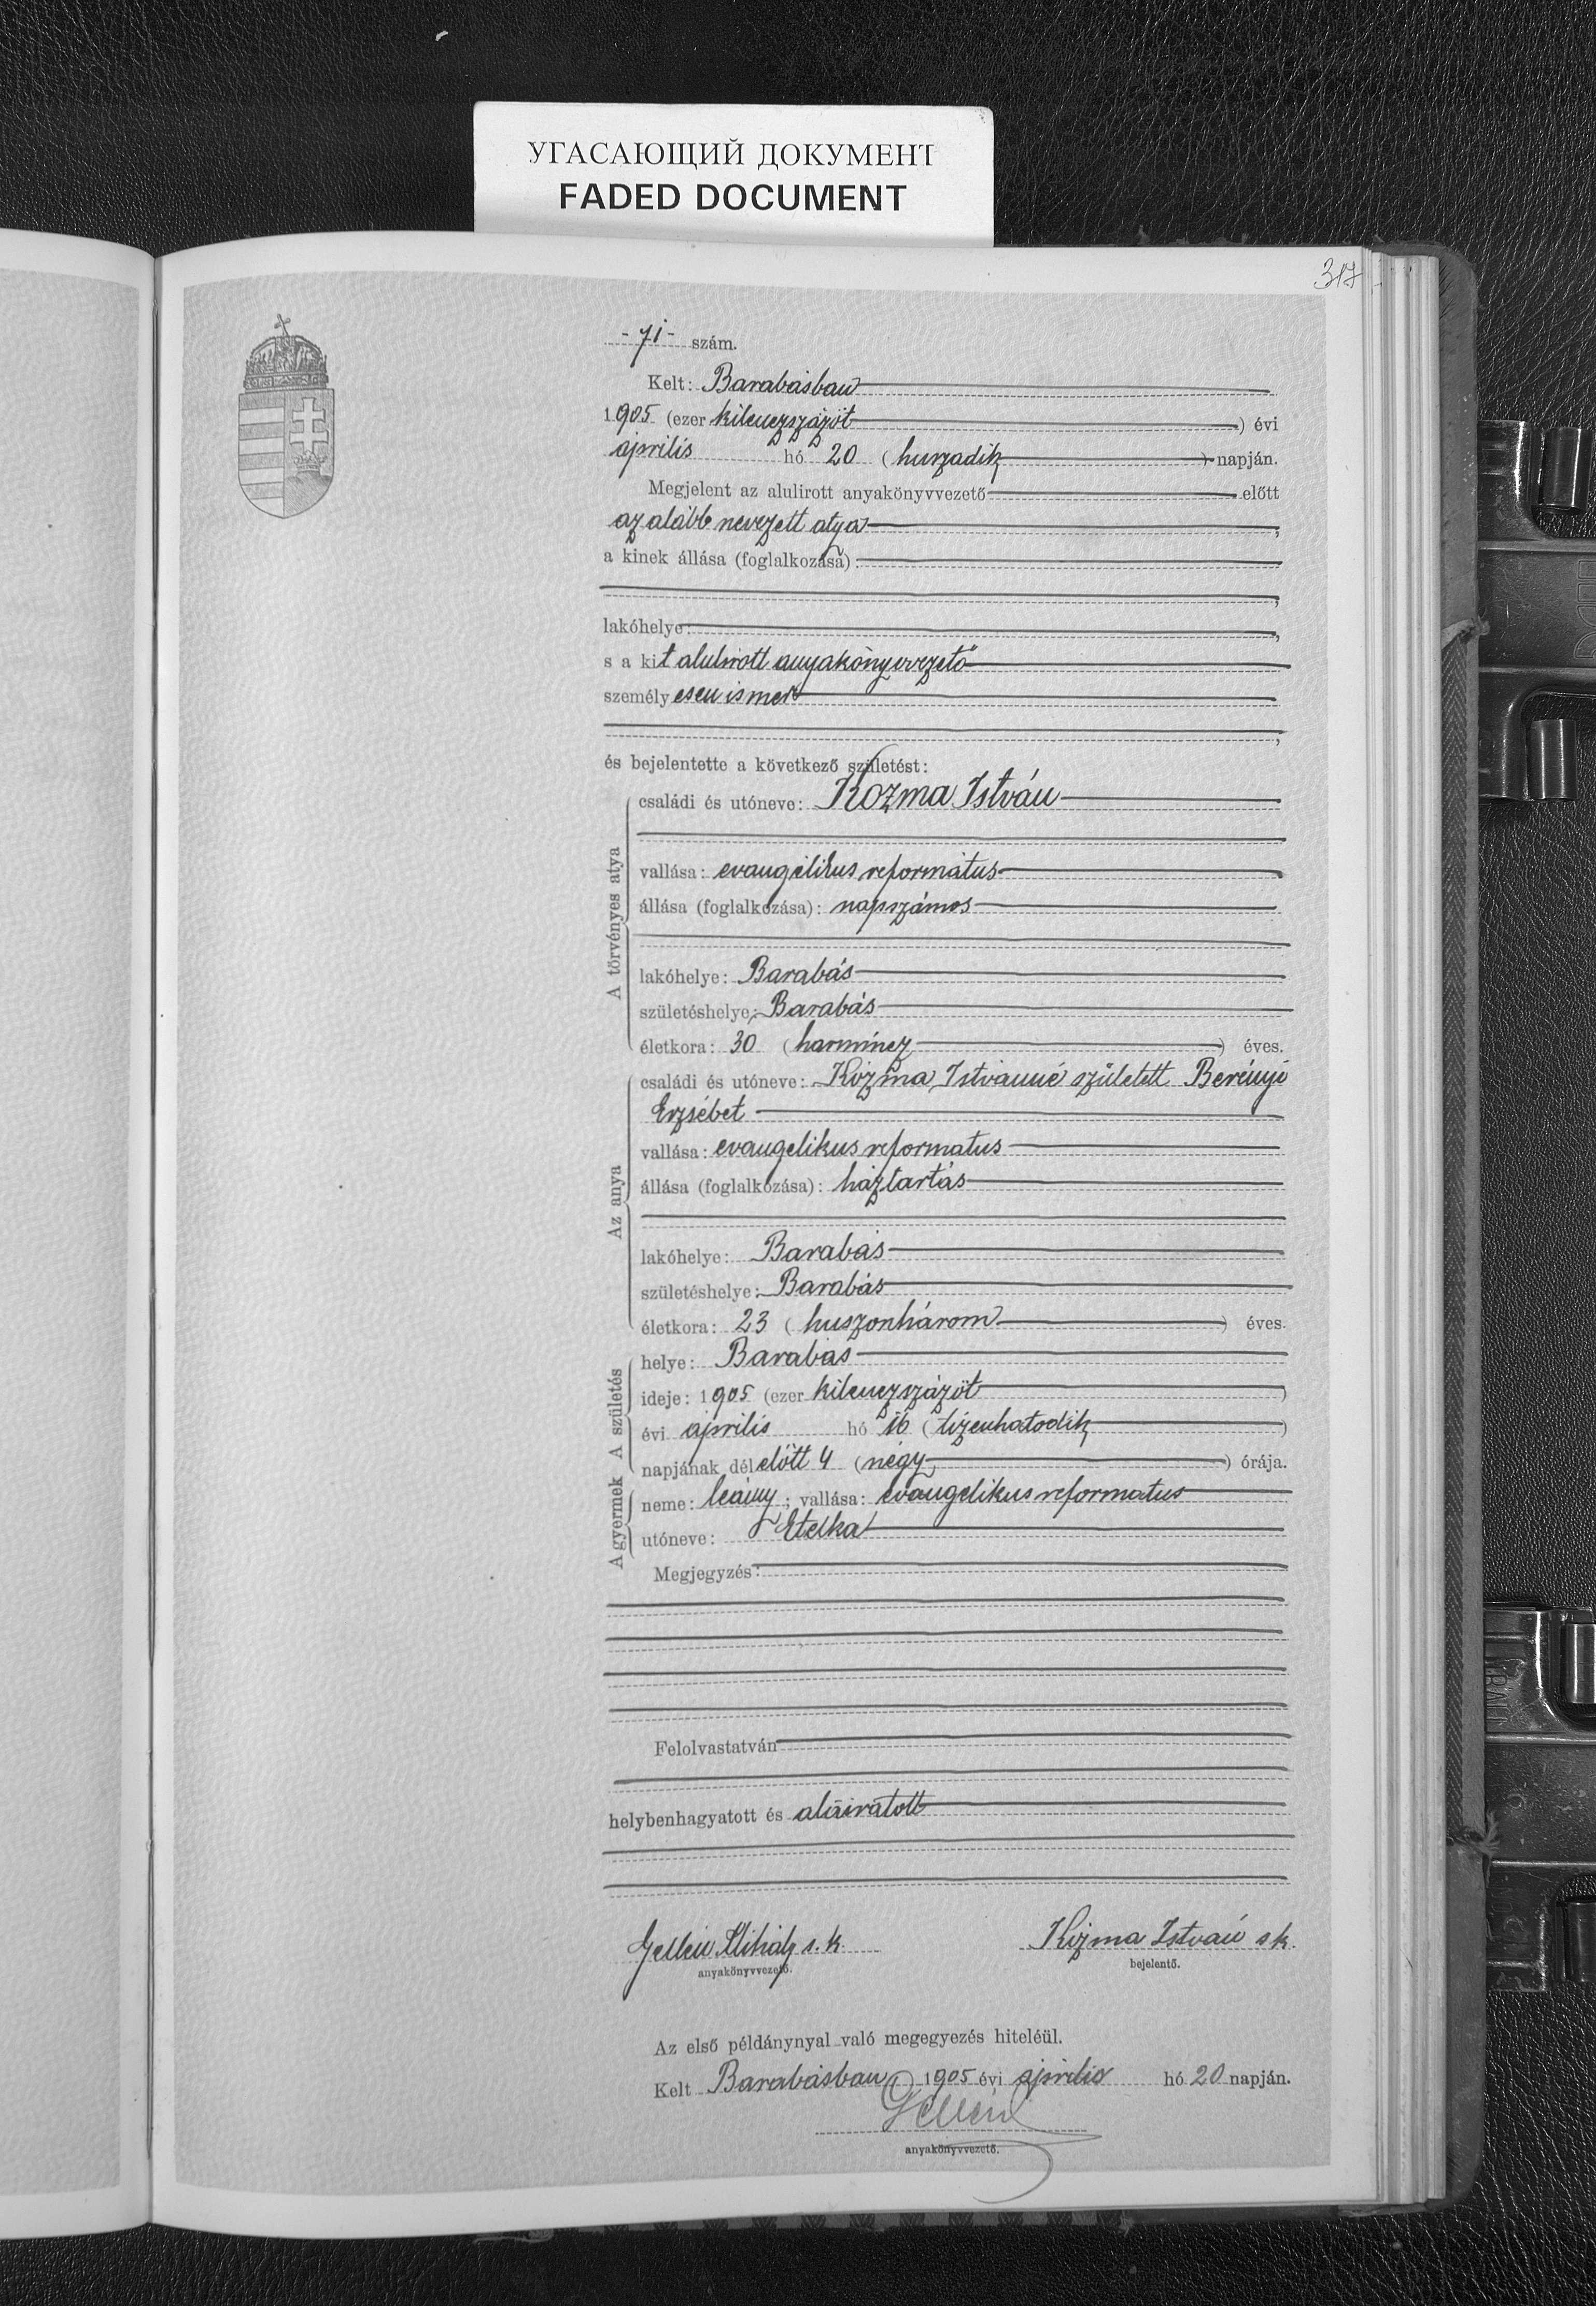 УГАСАЮЩИЙ ДОКУМЕНТ
FADED DOCUMENT
317
- 71 - szám.
Kelt: Barabásban
1905 (ezer kilenczszázöt) évi
április hó 20 (huszadik) napján.
Megjelent az alulirott anyakönyvvezető előtt
az alább nevezett atya,
a kinek állása (foglalkozása):
,
lakóhelye: ,
s a kit alulirott anyakönyvvezető
személyesen ismer
,
és bejelentette a következő születést:
A törvényes atya
családi és utóneve: Kozma István
vallása: evangélikus református
állása (foglalkozása): napszámos
lakóhelye: Barabás
születéshelye: Barabás
életkora: 30 (harmincz) éves.
Az anya
családi és utóneve: Kozma Istvánné született Berényi
Erzsébet
vallása: evangelikus reformatus
állása (foglalkozása): háztartás
lakóhelye: Barabás
születéshelye: Barabás
életkora: 23 (huszonhárom) éves.
A születés
helye: Barabás
ideje: 1905 (ezer kilenczszázöt)
évi április hó 16 (tizenhatodik)
napjának délelőtt 4 (négy) órája.
A gyermek
neme: leány; vallása: evangelikus reformatus
utóneve: Etelka
Megjegyzés:
Felolvastatván
helybenhagyatott és aláiratott
Gellén Mihály s. k. Kozma István s k.
anyakönyvvezető. bejelentő.
Az első példánynyal való megegyezés hiteléül.
Kelt Barabásban 1905 évi április hó 20 napján.
Gellén
anyakönyvvezető.